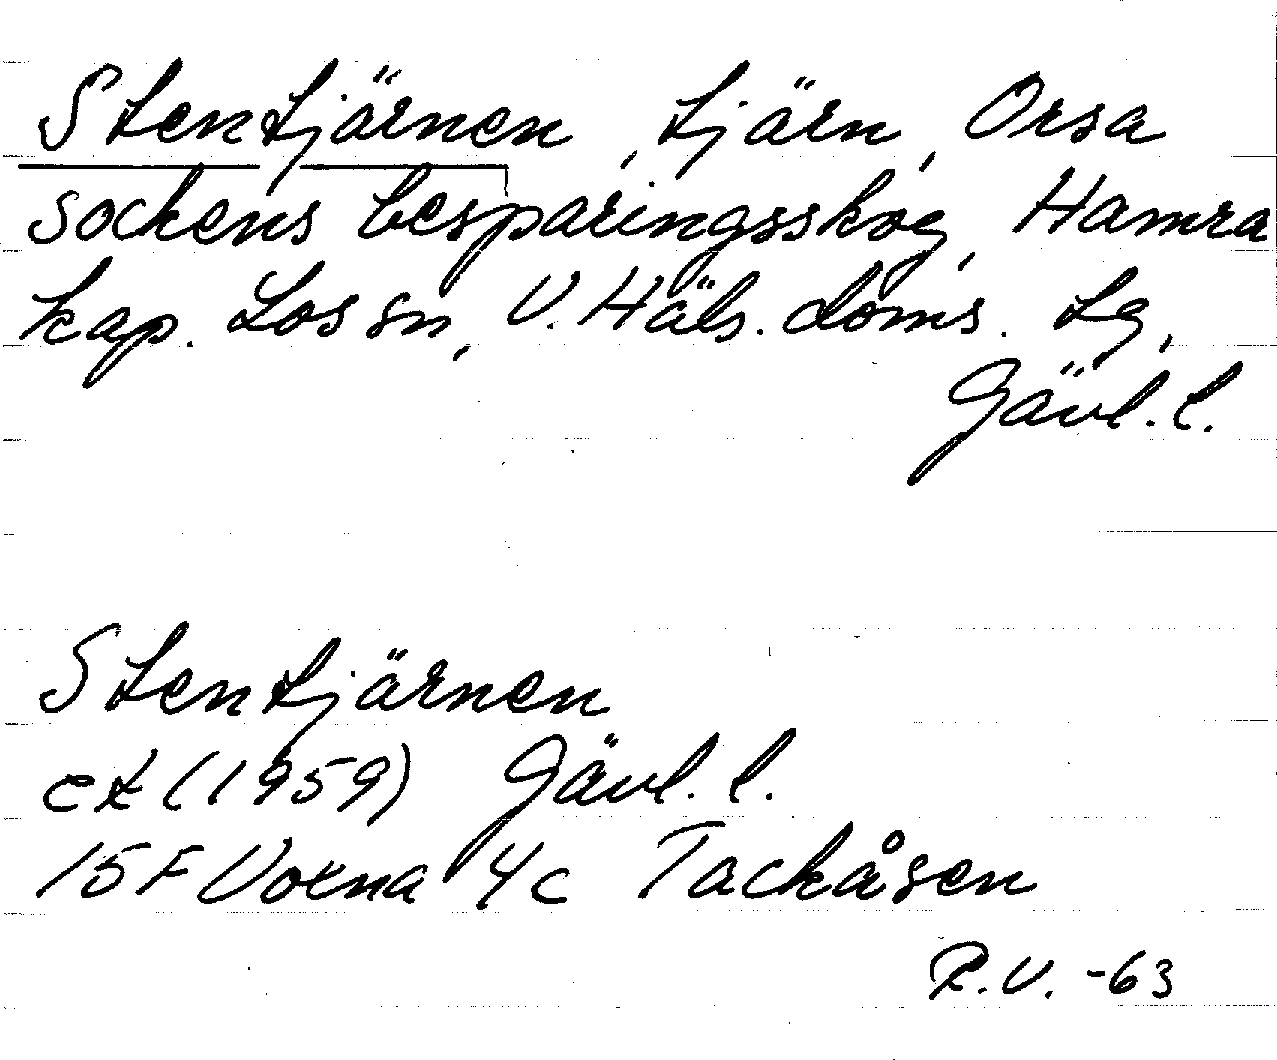 Stentjärnen, tjärn, Orsa
sockens besparingsskog, Hamra
kap. Los sn, V. Häls. doms. tg,
Gävl. l.
Stentjärnen
ek (1959) Gävl. l.
15F Voxna 4c Tackåsen
R.V. -63